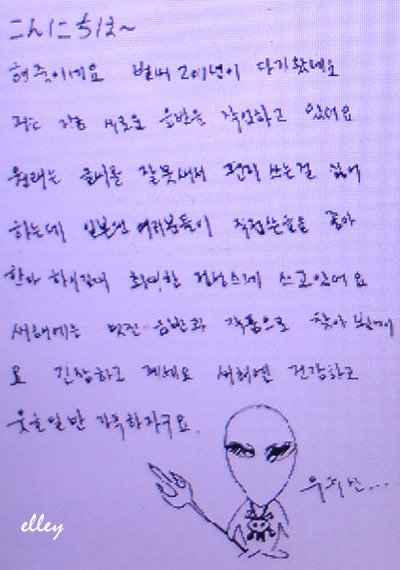 こんにちは~
현중이에요 벌써 2011년이 다가왔네요
저는 지금 새로운 음반을 작업하고 있어요
원래는 글씨를 잘못써서 편지 쓰는걸 싫어
하는데 일본팬 여러분들이 직접쓴글을 좋아
한다 하시길래 최대한 정성스레 쓰고있어요
새해에는 멋진 음반과 작품으로 찾아 뵐테니
요 긴장하고 계세요 새해엔 건강하고
웃을일만 가득하자구요.
우주신...
elley